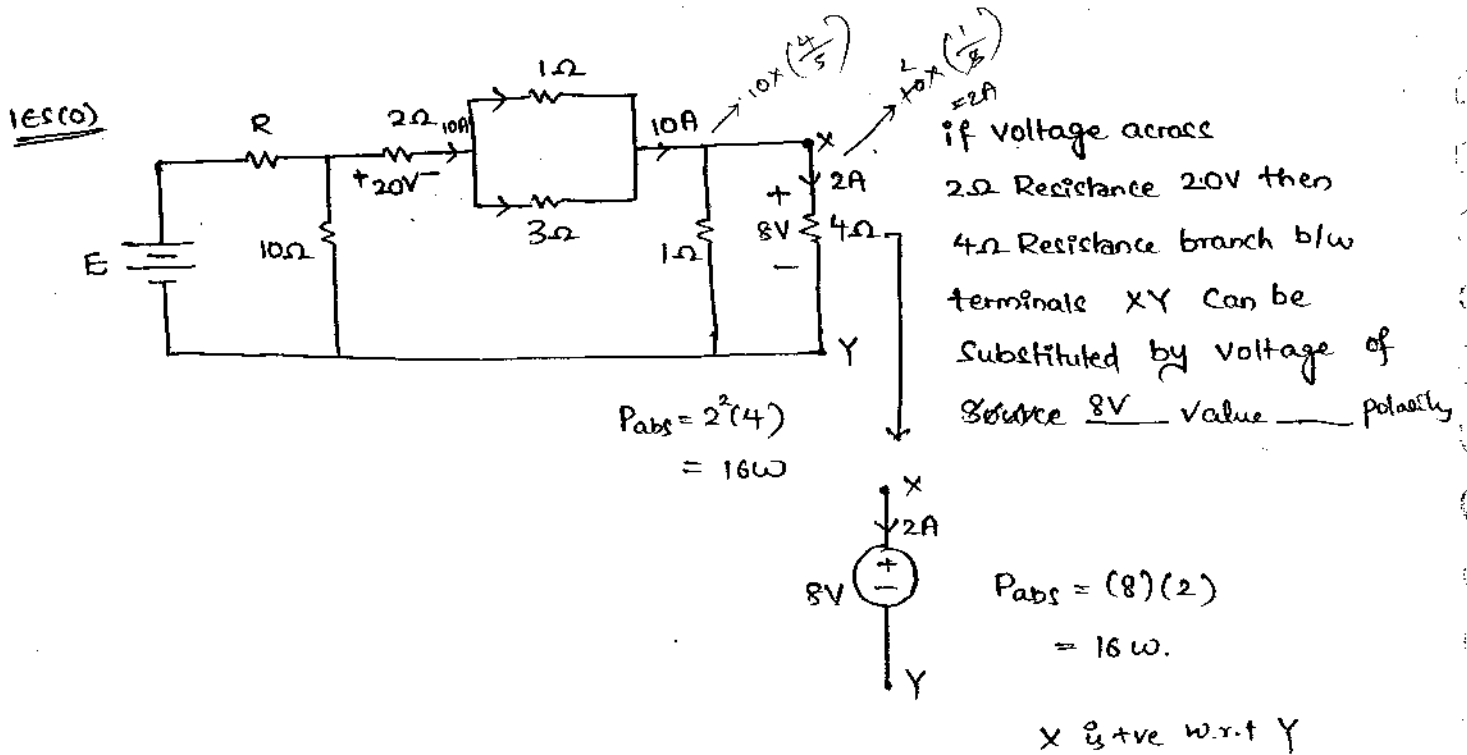 IES(O)
R
2Ω
10A
+20V-
1Ω
3Ω
10A
10×(4/5)
10×(1/5)
2
=2A
E
10Ω
1Ω
X
2A
+
8V
4Ω
-
Y
if voltage across
2Ω Resistance 20V then
4Ω Resistance branch b/w
terminals XY Can be
Substituted by voltage of
Source 8V Value ___ polarity
Pabs = 2²(4)
= 16W
X
2A
+
-
8V
Y
Pabs = (8)(2)
= 16 W.
X is +ve w.r.t Y